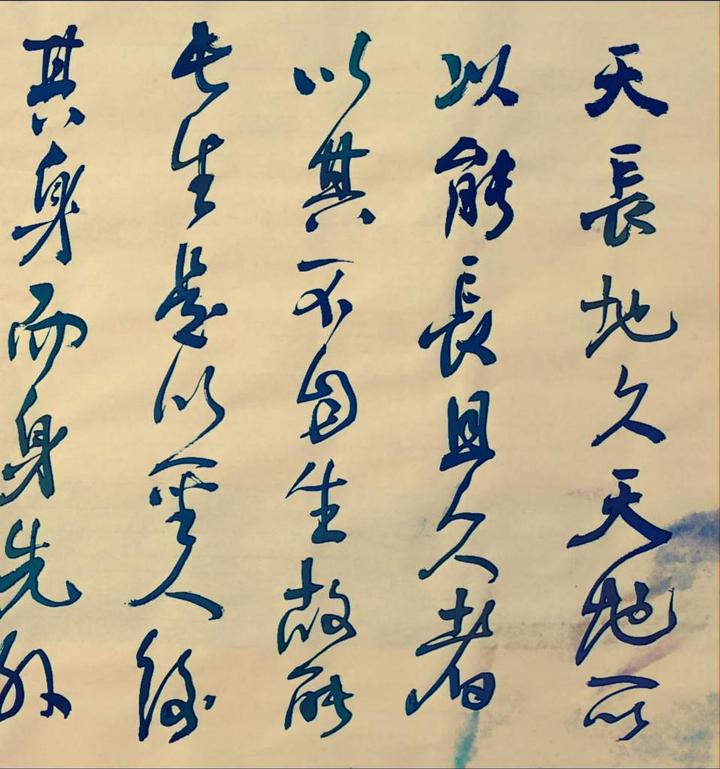 天長地久天地所
以能長且久者
以其不自生故能
長生是以聖人後
其身而身先外